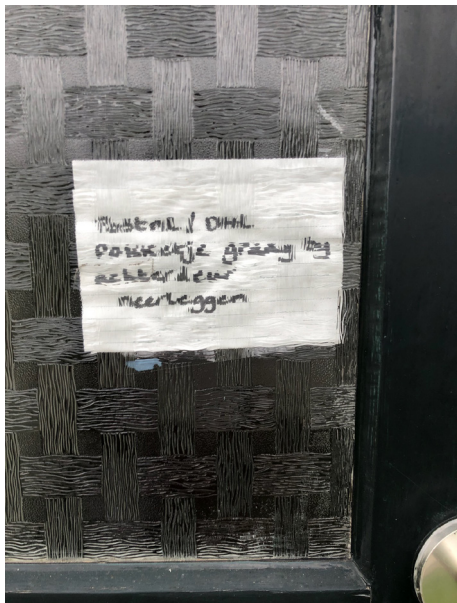 PostNL / DHL
Pakketje graag bij
achterdeur
neerleggen